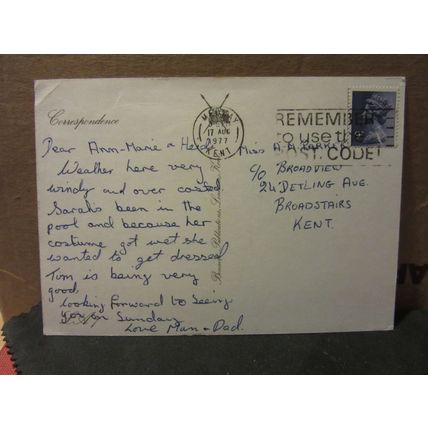 Correspondence
Dear Ann-Marie & Heidi
Weather here very
windy and over casted
Sarah's been in the
pool and because her
costume got wet she
wanted to get dressed
Tom is being very
good
looking forward to seeing
you on Sunday
Love Mam & Dad.
17 AUG
1977
KENT
REMEMBER
to use the
POST CODE!
Miss A.
c/o BROADVIEW
24 DETLING AVE.
BROADSTAIRS
KENT.